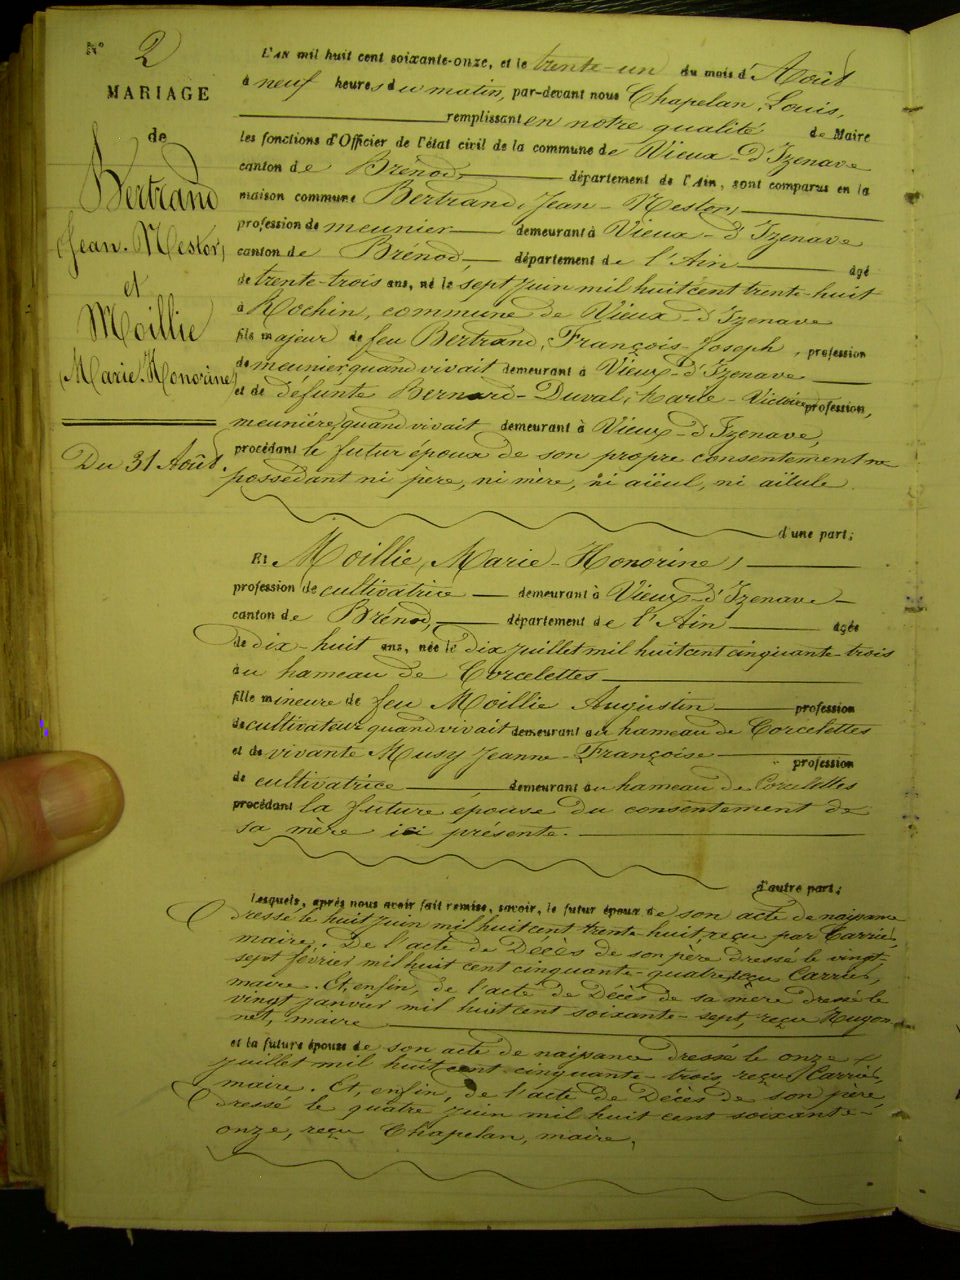 N° 2
MARIAGE
de
Bertrand
Jean-Nestor,
et
Moillie
Marie-Honorine,
Du 31 Août.
L'AN mil huit cent soixante-onze, et le trente-un du mois d'Août
à neuf heures du matin, par-devant nous Chapelan, Louis,
remplissant en notre qualité de Maire
les fonctions d'Officier de l'état civil de la commune de Vieux-d'Izenave
canton de Brénod, département de l'Ain, sont comparus en la
maison commune Bertrand, Jean-Nestor,
profession de meunier demeurant à Vieux-d'Izenave
canton de Brénod, département de l'Ain âgé
de trente-trois ans, né le sept juin mil huit cent trente-huit
à Rochin, commune de Vieux-d'Izenave
fils majeur de feu Bertrand, François-Joseph, profession
de meunier quand vivait demeurant à Vieux-d'Izenave
et de défunte Bernard-Duval, Marie-Victoire profession,
meunière quand vivait, demeurant à Vieux-d'Izenave,
procédant le futur époux de son propre consentement ne
possédant ni père, ni mère, ni aïeul, ni aïeule
d'une part;
Et Moillie, Marie-Honorine,
profession de cultivatrice demeurant à Vieux-d'Izenave
canton de Brénod, département de l'Ain âgée
de dix-huit ans, née le dix juillet mil huit cent cinquante-trois
au hameau de Corcelettes
fille mineure de feu Moillie Augustin profession
de cultivateur quand vivait demeurant au hameau de Corcelettes
et de vivante Musy Jeanne-Françoise profession
de cultivatrice demeurant au hameau de Corcelettes
procédant la future épouse du consentement de
sa mère ici présente.
d'autre part;
Lesquels, après nous avoir fait remise, savoir, le futur époux de son acte de naissance
dressé le huit juin mil huit cent trente-huit, reçu par Carrier,
maire. De l'acte de Décès de son père dressé le vingt-
sept février mil huit cent cinquante-quatre, reçu Carrier,
maire. Et, enfin, de l'acte de Décès de sa mère dressé le
vingt janvier mil huit cent soixante-sept, reçu Hugon-
net, maire
et la future épouse de son acte de naissance dressé le onze
juillet mil huit cent cinquante-trois, reçu Carrier,
maire. Et, enfin, de l'acte de Décès de son père
dressé le quatre juin mil huit cent soixante-
onze, reçu Chapelan, maire,